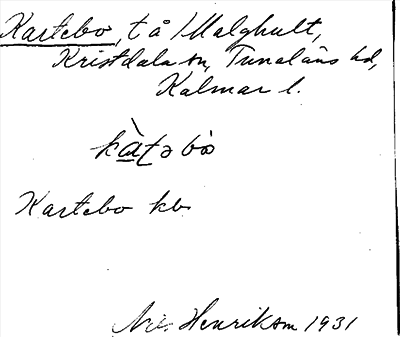 Kartebo, t å Malghult,
Kristdala sn, Tunaläns hd,
Kalmar l.
kàtəbò
Kartebo kb
Henrikson 1931